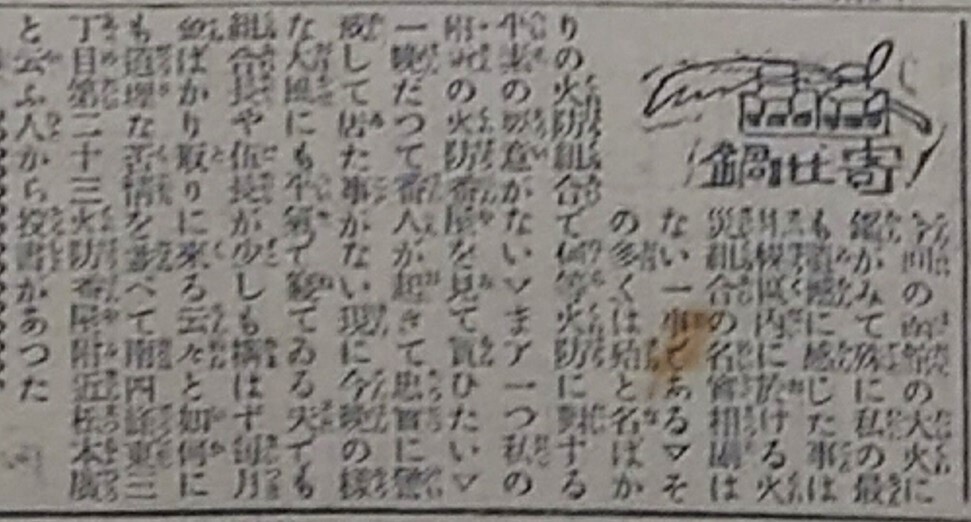 寄せ鍋
今回の函館の大火に
鑑がみて殊に私の最
も遺憾に感じた事は
札幌區内に於ける火
災組合の名實相副は
ない一事である▽そ
の多くは殆と名ばか
りの火防組合で何等火防に對する
平素の用意がない▽まア一つ私の
附近の火防番屋を見て貰ひたい▽
一晩だつて番人が起きて忠實に警
戒して居た事がない現に今晩の様
な大風にも平氣で寝てゐる夫でも
組合長や伍長が少しも構はず毎月
金ばかり取りに來る云々と如何に
も道理な苦情を並べて南四條東三
丁目第二十三火防番屋附近松本廣
と云ふ人から投書があつた